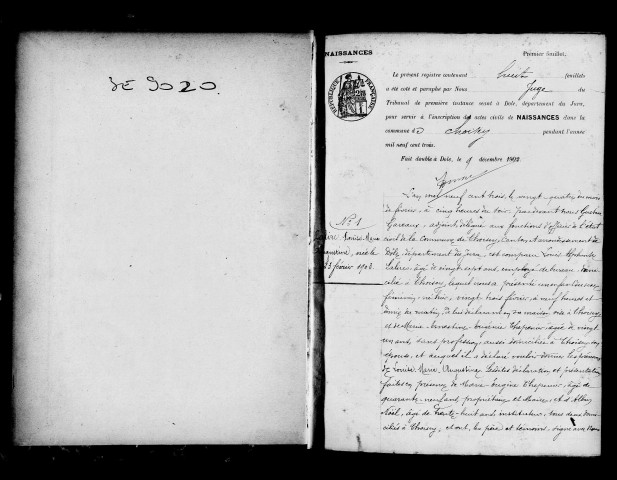 5E 9020
NAISSANCES
Premier feuillet.
RÉPUBLIQUE FRANÇAISE
Le présent registre contenant huit feuillets
a été coté et paraphé par Nous Juge du
Tribunal de première instance séant à Dole, département du Jura,
pour servir à l'inscription des actes civils de NAISSANCES dans la
commune de Choisey pendant l'année
mil neuf cent trois.
Fait double à Dole, le 9 décembre 1902.
L'an mil neuf cent trois, le vingt-quatre du mois
de février, à cinq heures du soir, Pardevant nous
adjoint délégué aux fonctions d'officier de l'état
civil de la Commune de Choisey, Canton et arrondissement de
Dole, département du Jura, est comparu Louis
âgé de vingt sept ans, employé de bureau, domi-
cilié à Choisey, lequel nous a présenté un enfant du sexe
féminin, né hier, vingt trois février, à neuf heures et
demie du matin, de lui déclarant en sa maison sise à Choisey
et de Marie Ernestine Eugénie Chapenir âgée de vingt
un ans, sans profession, aussi domiciliée à Choisey, son
épouse, et auquel il a déclaré vouloir donner les prénoms
de Louise Marie Augustine. Lesdites déclaration et présentation
faites en présence de Marie Eugène Chapenir, âgé de
quarante-neuf ans propriétaire et Maire, et d'
Noël, âgé de trente-huit ans instituteur, tous deux domi-
ciliés à Choisey, et ont, les père et témoins, signé avec Nous
N° 1
Louise Marie
Augustine, née le
23 février 1903.